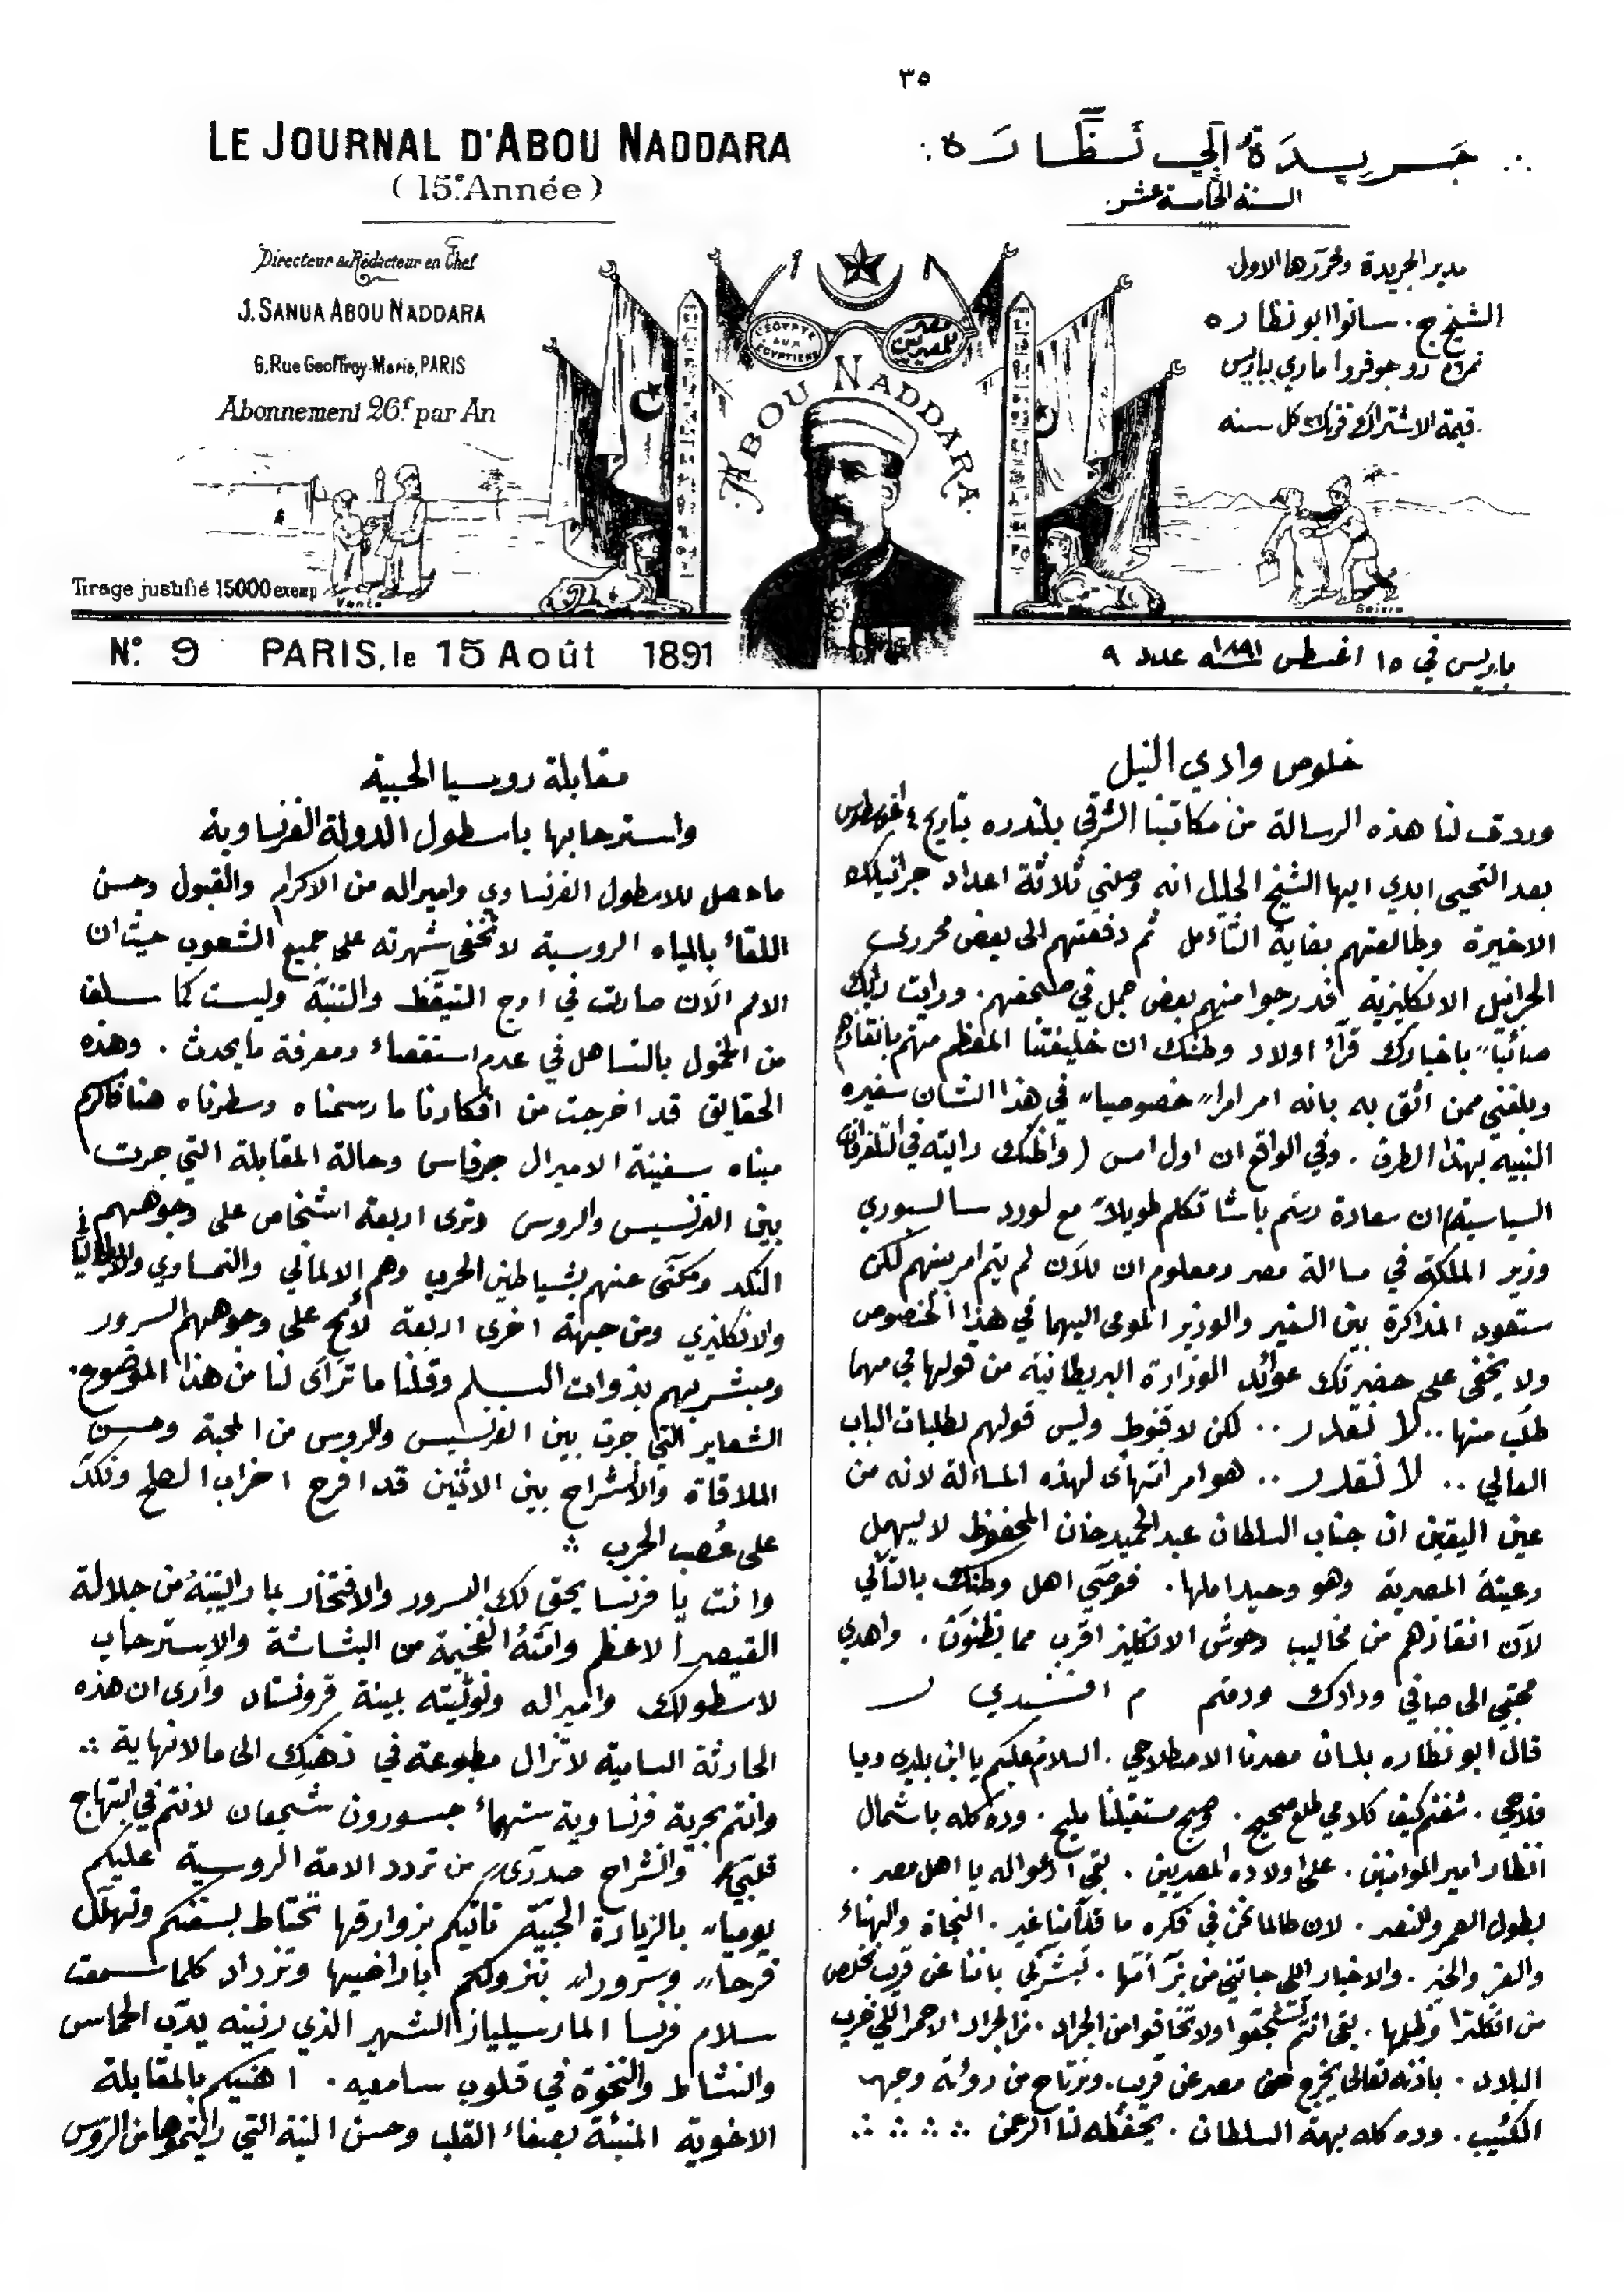 ٣٥
LE JOURNAL D'ABOU NADDARA
(15e Année)
Directeur & Rédacteur en Chef
J. SANUA ABOU NADDARA
6, Rue Geoffroy-Marie, PARIS
Abonnement 26f par An
Tirage justifié 15000 exemp
Vente
جَرِيدَةُ أَبِي نَظَّارَه
السنة الخامسة عشر
مدير الجريدة ومحررها الاول
الشيخ ج. سانوا ابو نظاره
نمرة ٦ رو جوفروا ماري بباريس
قيمة الاشتراك ٢٦ فرنك كل سنه
L'EGYPTE AUX EGYPTIENS
مصر للمصريين
ABOU NADDARA
Saisie
No. 9 PARIS, le 15 Août 1891
باريس في ١٥ اغسطس سنة ١٨٩١ عدد ٩
خلوص وادي النيل
وردت لنا هذه الرسالة من مكاتبنا الشرقي بلندره بتاريخ ٤ اغوسطوس
بعد التحيى ابدي ايها الشيخ الجليل انه وصلني ثلاثة اعداد جرانيلك
الاخيرة وطالعتهم بغاية التأمل ثم دفعتهم الى بعض محرري
الجرانيل الانكليزية فدرجوا منهم بعض جمل في صحفهم. ورايت رايك
صائبا باخبارك قرآء اولاد وطنك ان خليفتنا المعظم مهتم بانقاذهم
وبلغني ممن اثق به بانه امر امرا خصوصيا في هذا الشان سفيره
النبيه بهذا الطرف. وفي الواقع ان اول امس (واظنك رايته في التلغرافات
السياسية) ان سعادة رستم باشا تكلم طويلا مع لورد سالسبوري
وزير الملكة في مسالة مصر ومعلوم ان للآن لم يتم امر بينهم لكن
ستعود المذاكرة بين السفير والوزير المومى اليهما في هذا الخصوص
ولا يخفى على حضرتك عوائد الوزارة البريطانية من قولها في مهما
طلب منها.. لا نقدر.. لكن لا قنوط وليس قولهم لطلبات الباب
العالي.. لا نقدر.. هو امر انتهائى لهذه المسألة لانه من
عين اليقين ان جناب السلطان عبد الحميد خان المحفوظ لا يهمل
رعيته المصرية وهو وحيد املها. فوصي اهل وطنك بالتأني
لآن انقاذهم من مخاليب وحوش الانكليز اقرب مما يظنون. واهدي
محبتي الى صافي ودادك ودمتم م افندي
قال ابو نظاره بلسان مصرنا الاصطلاحي. السلام عليكم يا ابن بلدي ويا
فلاحي. شفتم كيف كلامي طلع صحيح. صحيح مستقبلنا مليح. وده كله باشمال
انظار امير المؤمنين. على اولاده المصريين. بقى ادعوا له يا اهل مصر.
بطول العمر والنصر. لان طالما نحن في فكره ما قدامنا غير. النجاة والهناء
والعز والخير. والاخبار اللي جاتني من بر امها. تبشركم باننا عن قريب نخلص
من انكلترا وظلمها. بقى انتم اتشجعوا ولا تخافوا من الجراد. من الجراد الاحمر اللي خرب
البلاد. باذنه تعالى يخرج من مصر عن قريب. ونرتاح من رؤية وجهه
الكئيب. وده كله بهمة السلطان. يحفظه لنا الرحمن
مقابلة روسيا الحبية
واسترحابها باسطول الدولة الفرنساوية
ما حصل للاسطول الفرنساوي واميراله من الاكرام والقبول وحسن
اللقاء بالمياه الروسية لا تخفى شهرته على جميع الشعوب حيث ان
الامم الآن صارت في اوج التيقظ والتنبه وليست كما سلف
من الخمول بالتساهل في عدم استقصاء ومعرفة ما يحدث. وهذه
الحقايق قد اخرجت من افكارنا ما رسمناه وسطرناه هنا فاكرم
مبناه سفينة الاميرال جرفاس وحالة المقابلة التي جرت
بين الفرنسيس والروس وترى اربعة اشخاص على وجوههم
النكد ومكنى عنهم بشياطين الحرب وهم الالماني والنمساوي والايطاليا ني
والانكليزي ومن جهة اخرى اربعة لائح على وجوههم السرور
ومبشر بهم بذوات السلم وقلنا ما تراى لنا من هذا الموضوع.
الشعاير التي جرت بين الفرنسيس والروس من المحبة وحسن
الملاقاة والانشراح بين الاثنين قد افرح احزاب الصلح ونكد
على عصب الحرب
وانت يا فرنسا يحق لك السرور والافتخار بما رايتيه من جلالة
القيصر الاعظم وامته الفخيمة من البشاشة والاسترحاب
لاسطولك واميراله ونوتيته بمينة قرونستاد وارى ان هذه
الحادثة السامية لا تزال مطبوعة في ذهنك الى ما لا نهاية
وانتم بحرية فرنساوية شهماء جسورون شجعان لا نتم في ابتهاج
قلبي وانشراح صدري من تردد الامة الروسية عليكم
يوميا بالزيارة الحبية تاتيكم بزوارقها تحتاط بسفنكم وتهلل
فرحا وسرورا بنزولكم باراضيها وتزداد كلما سمعت
سلام فرنسا المارسيلياز الشهير الذي رنينه يدب الحماس
والنشاط والنخوة في قلوب سامعيه. اهنيكم بالمقابلة
الاخوية المنبئة بصفاء القلب وحسن النية التي رايتموها من الروس